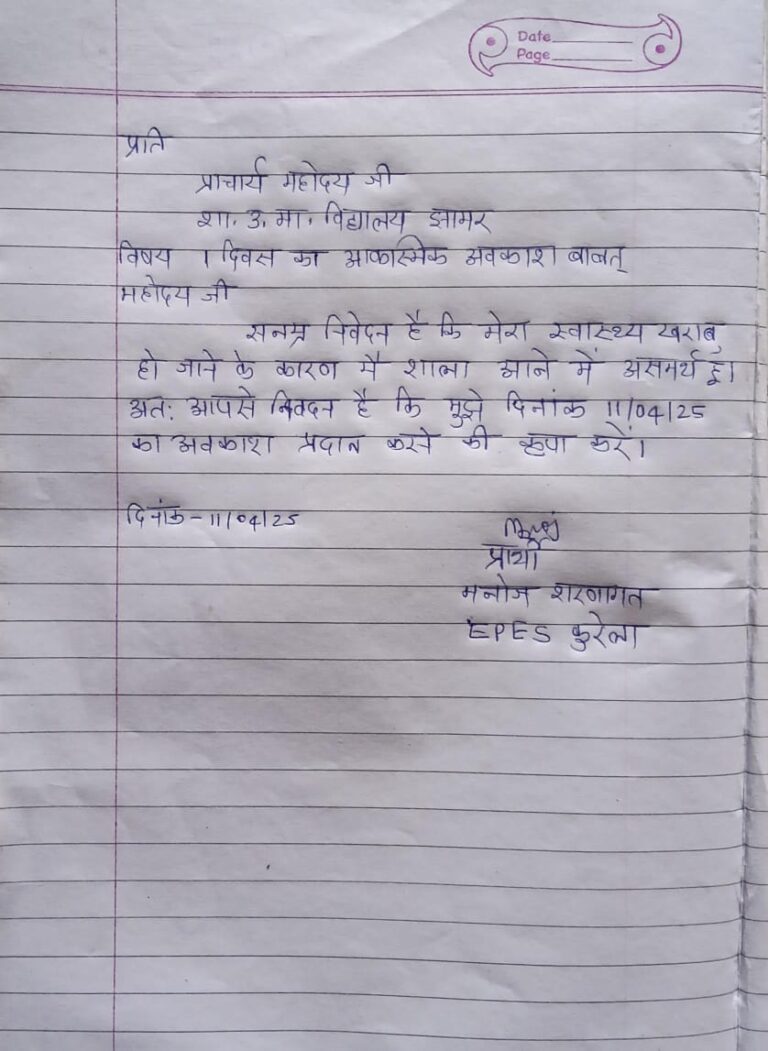 Date
Page
प्रति
प्राचार्य महोदय जी
शा. उ. मा. विद्यालय झामर
विषय 1 दिवस का आकस्मिक अवकाश बाबत्
महोदय जी
सनम्र निवेदन है कि मेरा स्वास्थ्य खराब
हो जाने के कारण मै शाला आने में असमर्थ हूँ।
अतः आपसे निवदन है कि मुझे दिनांक 11/04/25
का अवकाश प्रदान करने की कृपा करें।
दिनांक - 11/04/25
प्रार्थी
मनोज शरणागत
EPES कुरेला